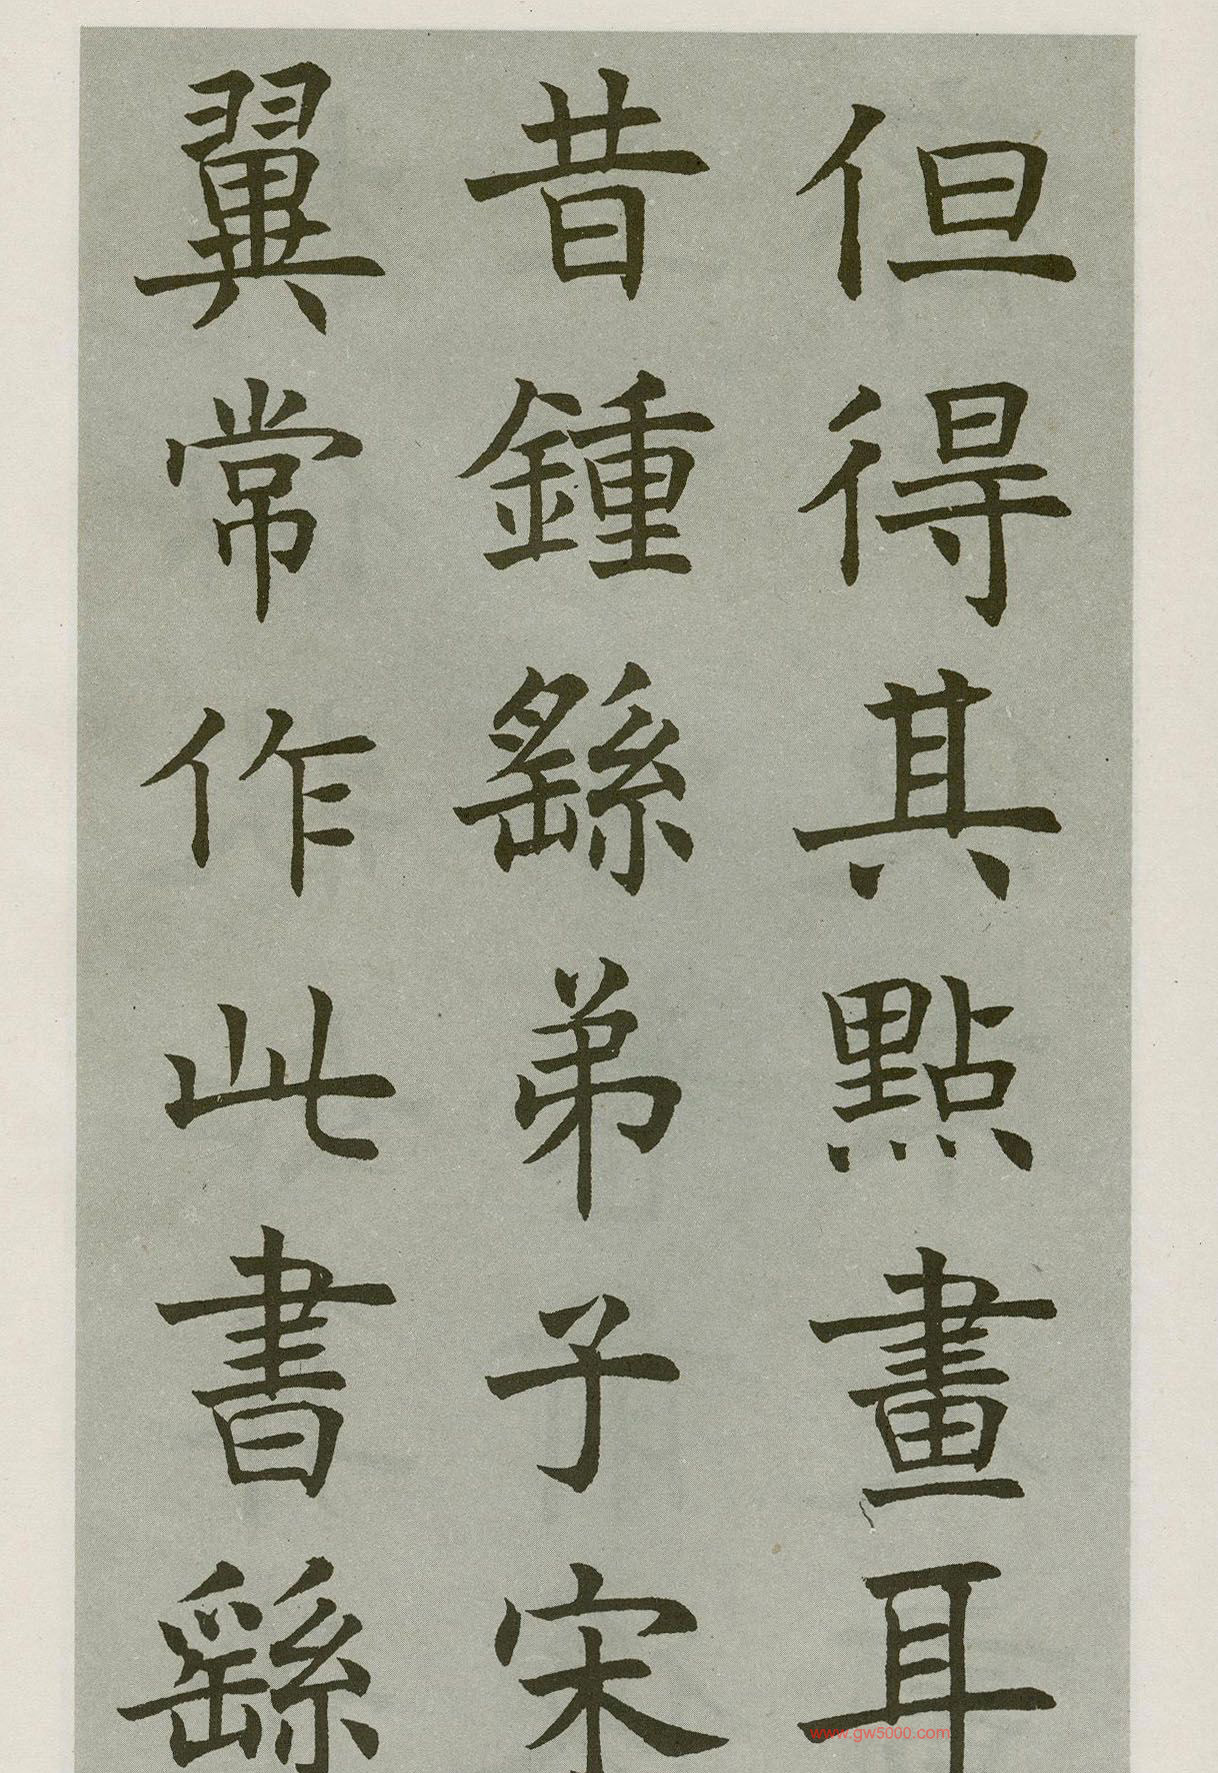 但得其點畫耳
昔鍾繇弟子宋
翼常作此書繇
www.gw5000.com